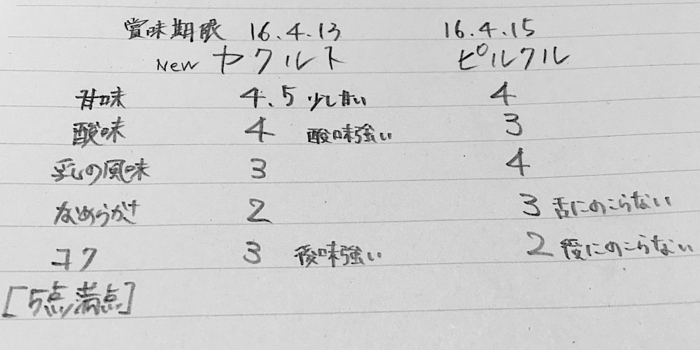 賞味期限 16.4.13 16.4.15
New ヤクルト ピルクル
甘味 4.5 少し甘い 4
酸味 4 酸味強い 3
乳の風味 3 4
なめらかさ 2 3 舌にのこらない
コク 3 後味強い 2 後にのこらない
[5点満点]